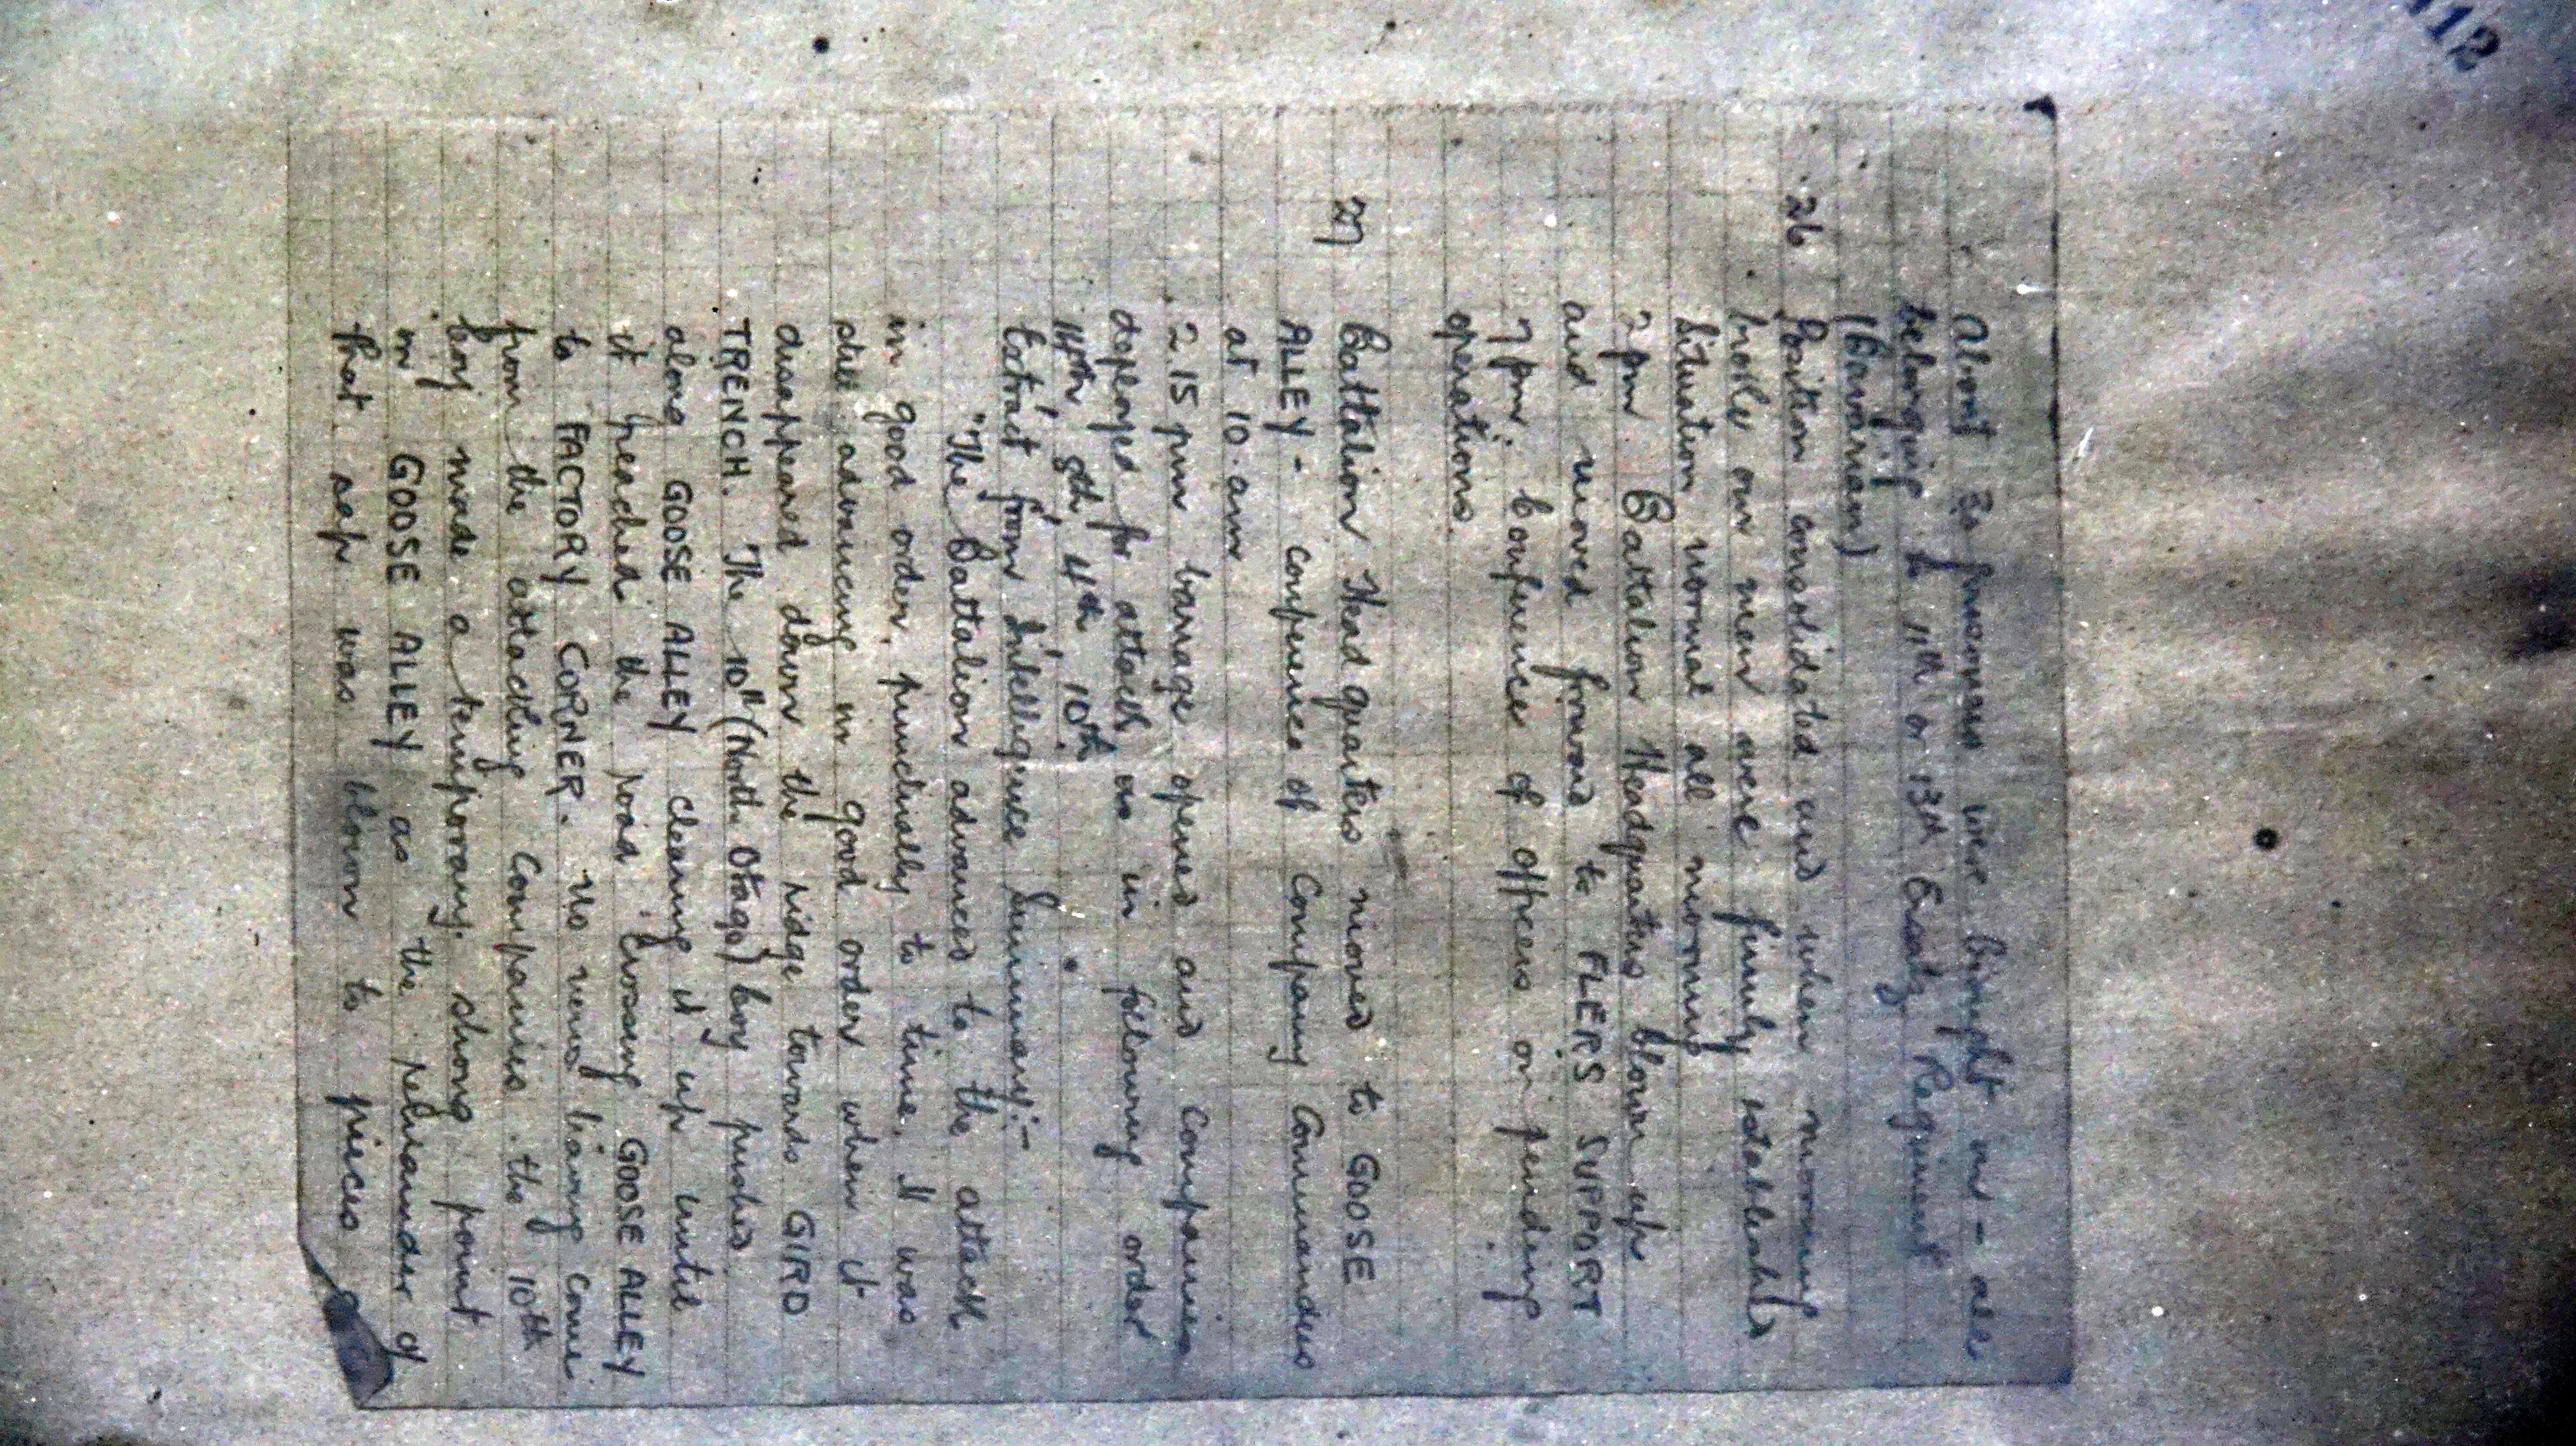 112
About 30 prisoners were brought in - all
belonging to 11th or 13th Regiment
(Bavarian)
26 Position consolidated and when morning
broke our men were firmly established
Situation normal all morning
2 pm Battalion Headquarters blown up
and moved forward to FLERS SUPPORT
7 pm. Conference of officers on pending
operations.
27 Battalion Head quarters moved to GOOSE
ALLEY - conference of Company Commanders
at 10. am
2.15 pm barrage opened and Companies
deployed for attack as in following order
14th, 8th, 4th, 10th.
Extract from Intelligence Summary:-
"The Battalion advanced to the attack
in good order, punctually to time. It was
still advancing in good order when it
disappeared down the ridge towards GIRD
TRENCH. The 10th (North Otago) Coy pushed
along GOOSE ALLEY clearing it up until
it reached the road crossing GOOSE ALLEY
to FACTORY CORNER. No news having come
from the attacking Companies. the 10th
Coy made a temporary strong point
in GOOSE ALLEY as the remainder of
that sap was blown to pieces